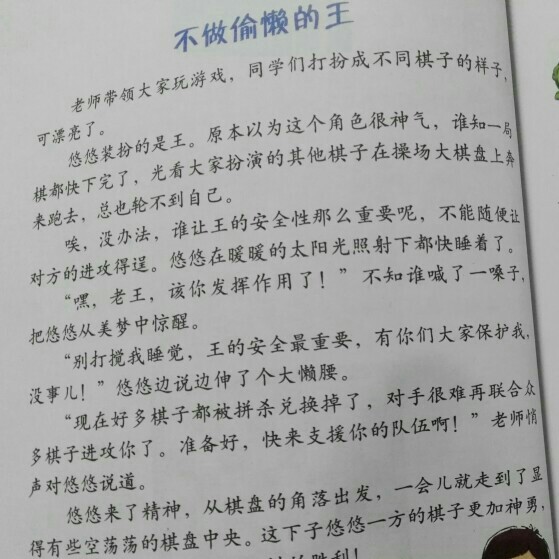 不做偷懒的王
老师带领大家玩游戏，同学们打扮成不同棋子的样子，
可漂亮了。
悠悠装扮的是王。原本以为这个角色很神气，谁知一局
棋都快下完了，光看大家扮演的其他棋子在操场大棋盘上奔
来跑去，总也轮不到自己。
唉，没办法，谁让王的安全性那么重要呢，不能随便让
对方的进攻得逞。悠悠在暖暖的太阳光照射下都快睡着了。
“嘿，老王，该你发挥作用了！”不知谁喊了一嗓子，
把悠悠从美梦中惊醒。
“别打搅我睡觉，王的安全最重要，有你们大家保护我，
没事儿！”悠悠边说边伸了个大懒腰。
“现在好多棋子都被拼杀兑换掉了，对手很难再联合众
多棋子进攻你了。准备好，快来支援你的队伍啊！”老师悄
声对悠悠说道。
悠悠来了精神，从棋盘的角落出发，一会儿就走到了显
得有些空荡荡的棋盘中央。这下子悠悠一方的棋子更加神勇，
的胜利！